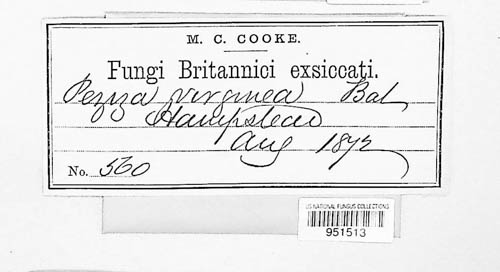 M. C. COOKE.
Fungi Britannici exsiccati.
Peziza virginea Bat
Hampstead
Aug 1872
No. 560
US NATIONAL FUNGUS COLLECTIONS
951513